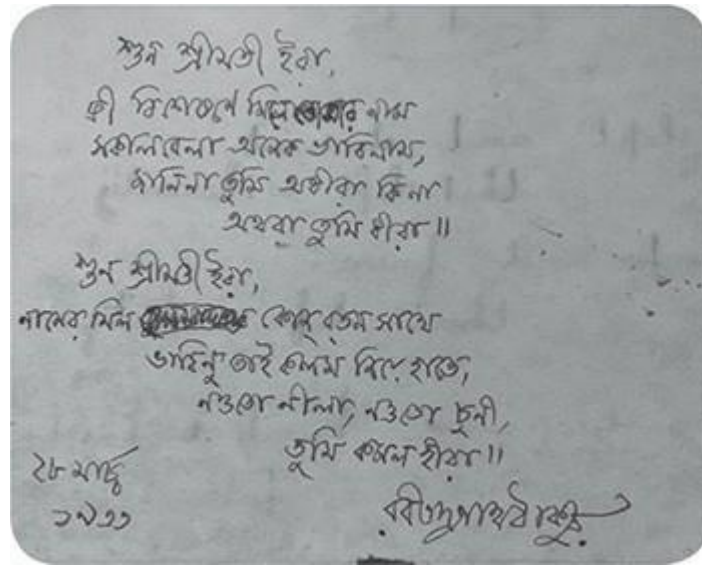 শুন শ্রীমতী ইরা,
কী বিশেষণে মিলে তোমার নাম
সকালবেলা অনেক ভাবিলাম,
জানিনা তুমি অধীরা কিনা
অথবা তুমি ধীরা॥
শুন শ্রীমতী ইরা,
নামের মিল কোন্ রতন সাথে
ভাবিনু তাই কলম নিয়ে হাতে,
নওতো নীলা, নওতো চুনী,
তুমি কমল হীরা॥
২৮ মার্চ্চ
১৯৩৩
রবীন্দ্রনাথ ঠাকুর